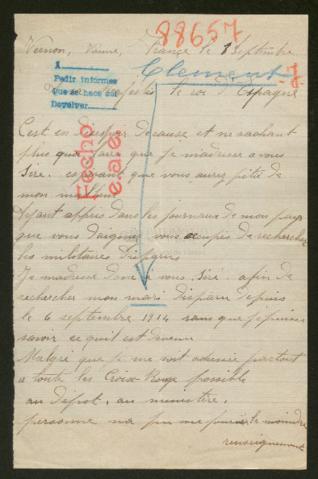 88657
Vernon, Vienne, France le 1 Septembre
Clement J.
A
Pedir informes
que se hace así
Devolver
Fecho
Majesté le roi d'Espagne
C'est en desespoir de cause et ne sachant
plus que faire que je m'adresse a vous
Sire. esperant que vous aurez pitié de
mon
Ayant appris dans les journaux de mon pays
que vous daignez vous occuper de rechercher
les militaires disparus
Je m'adresse donc a vous Siré afin de
rechercher mon mari disparu depuis
le 6 septembre 1914 sans que je puisse
savoir ce qu'il est devenu
Malgré que je me soit adressée partout
a toute les Croix-Rouge possible
au dépot, au ministère,
personne na pu me le moindre
renseignement